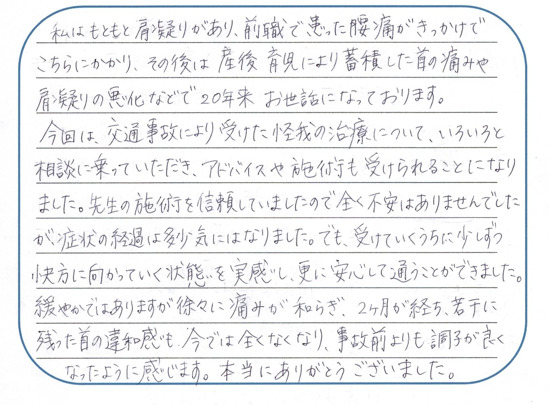 私はもともと肩凝りがあり、前職で患った腰痛がきっかけで
こちらにかかり、その後は産後育児により蓄積した首の痛みや
肩凝りの悪化などで20年来お世話になっております。
今回は、交通事故により受けた怪我の治療について、いろいろと
相談に乗っていただき、アドバイスや施術も受けられることになり
ました。先生の施術を信頼していましたので全く不安はありませんでした
が、症状の経過は多少気にはなりました。でも、受けていくうちに少しずつ
快方に向かっていく状態を実感し、更に安心して通うことができました。
緩やかではありますが徐々に痛みが和らぎ、2ヶ月が経ち、若干に
残った首の違和感も、今では全くなくなり、事故前よりも調子が良く
なったように感じます。本当にありがとうございました。